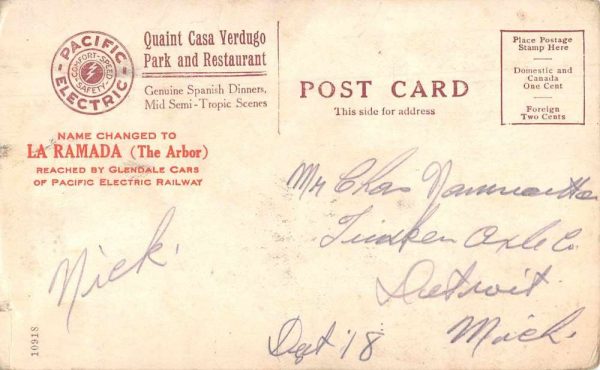 PACIFIC ELECTRIC
COMFORT-SPEED
SAFETY
Quaint Casa Verdugo
Park and Restaurant
Genuine Spanish Dinners,
Mid Semi-Tropic Scenes
NAME CHANGED TO
LA RAMADA (The Arbor)
REACHED BY GLENDALE CARS
OF PACIFIC ELECTRIC RAILWAY
Nick.
10918
POST CARD
This side for address
Place Postage
Stamp Here
Domestic and
Canada
One Cent
Foreign
Two Cents
Mr Chas
Timken Axle Co.
Detroit
Mich.
Dept 18